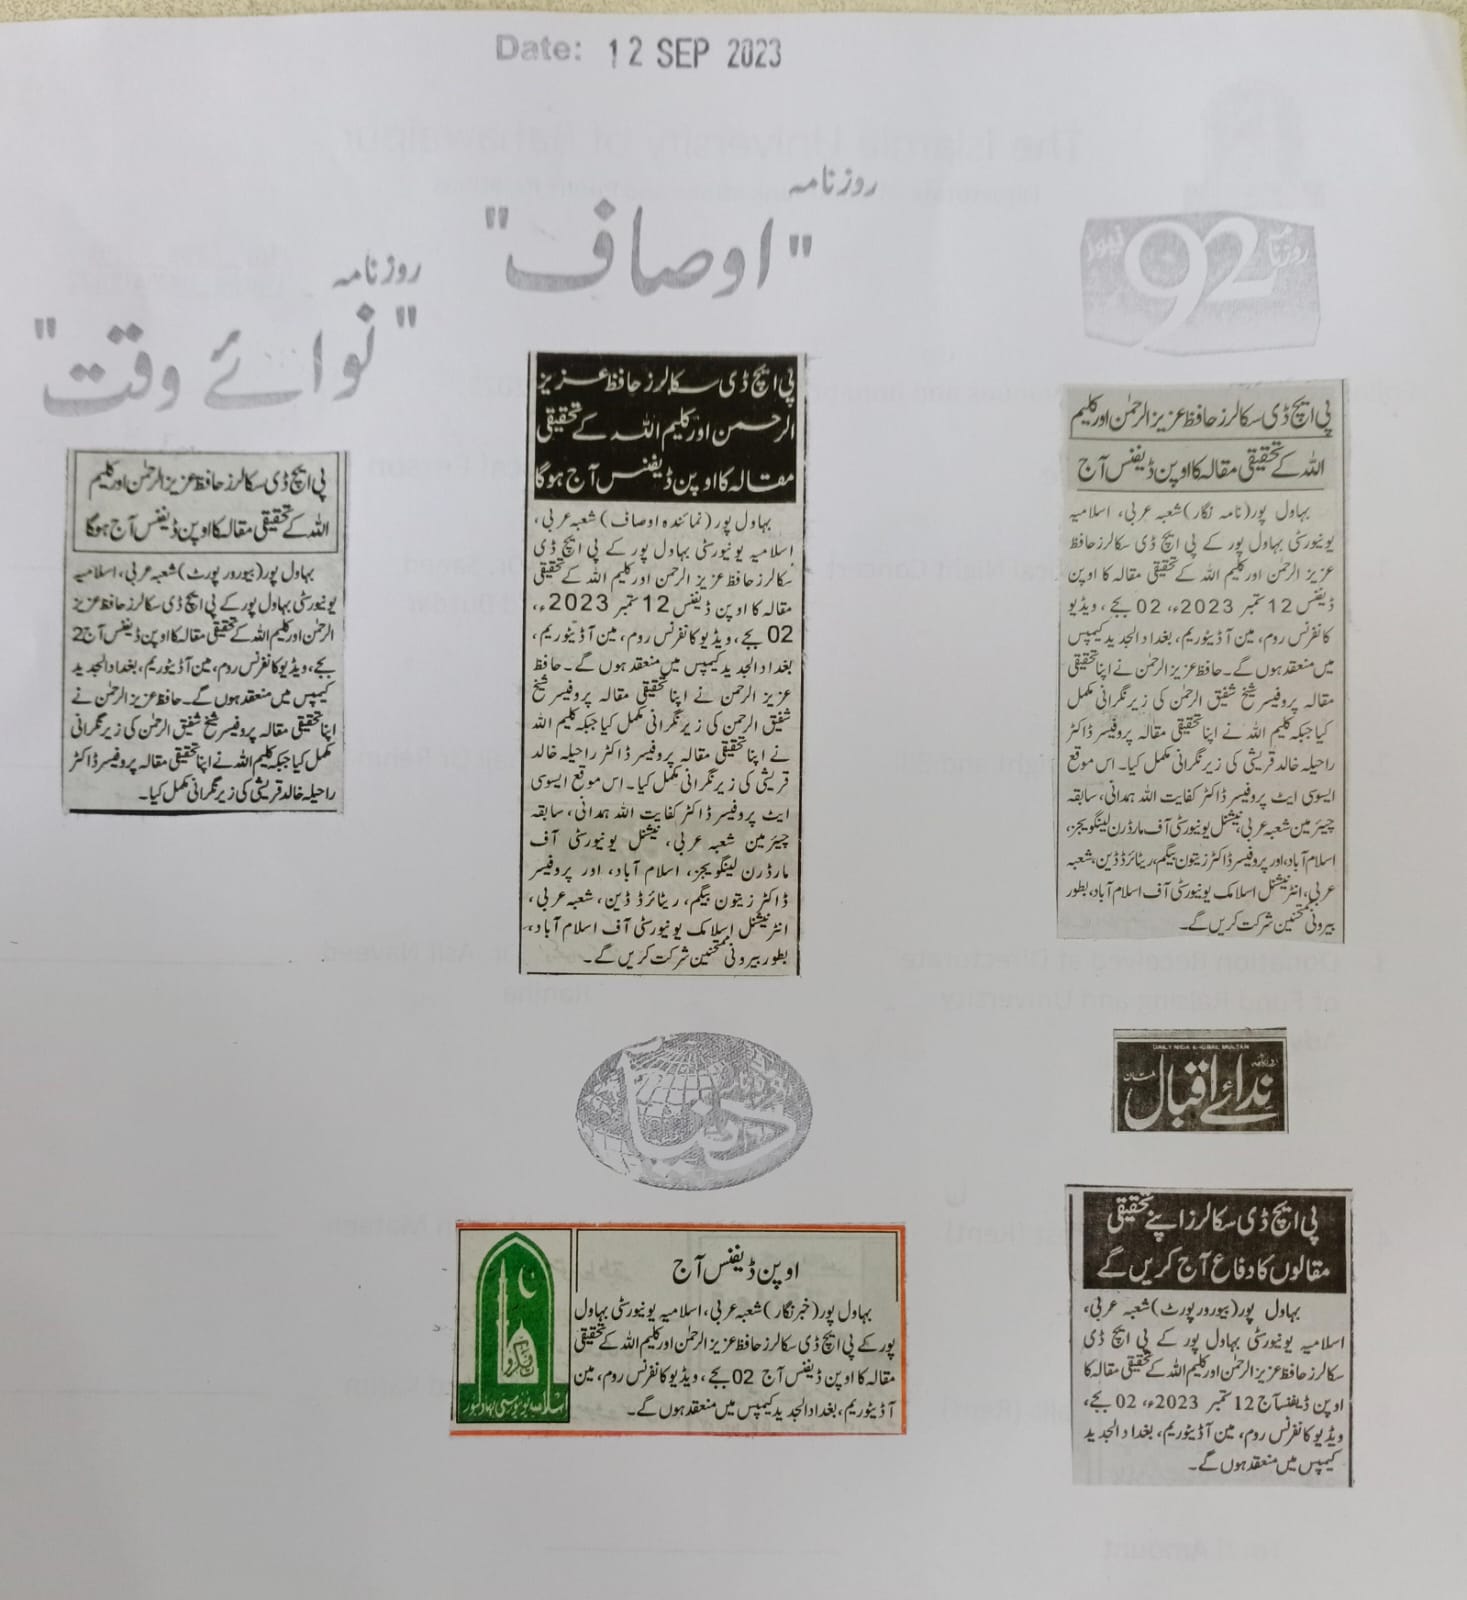 Date: 12 SEP 2023
روزنامہ
"نوائے وقت"
پی ایچ ڈی سکالرز حافظ عزیز الرحمٰن اور کلیم
اللہ کے تحقیقی مقالہ کا اوپن ڈیفنس آج ہوگا
بہاول پور (بیورورپورٹ) شعبہ عربی، اسلامیہ
یونیورسٹی بہاول پور کے پی ایچ ڈی سکالرز حافظ عزیز
الرحمٰن اور کلیم اللہ کے تحقیقی مقالہ کا اوپن ڈیفنس آج 2
بجے، ویڈیو کانفرنس روم، مین آڈیٹوریم، بغداد الجدید
کیمپس میں منعقد ہوں گے۔ حافظ عزیز الرحمٰن نے
اپنا تحقیقی مقالہ پروفیسر شیخ شفیق الرحمٰن کی زیر نگرانی
مکمل کیا جبکہ کلیم اللہ نے اپنا تحقیقی مقالہ پروفیسر ڈاکٹر
راحیلہ خالد قریشی کی زیر نگرانی مکمل کیا۔
روزنامہ
"اوصاف"
پی ایچ �ی سکالرز حافظ عزیز
الرحمن اور کلیم اللہ کے تحقیقی
مقالہ کا اوپن ڈیفنس آج ہوگا
بہاول پور (نمائندہ اوصاف) شعبہ عربی،
اسلامیہ یونیورسٹی بہاول پور کے پی ایچ ڈی
سکالرز حافظ عزیز الرحمن اور کلیم اللہ کے تحقیقی
مقالہ کا اوپن ڈیفنس 12 ستمبر 2023ء،
02 بجے، ویڈیو کانفرنس روم، مین آڈیٹوریم،
بغداد الجدید کیمپس میں منعقد ہوں گے۔ حافظ
عزیز الرحمن نے اپنا تحقیقی مقالہ پروفیسر شیخ
شفیق الرحمن کی زیر نگرانی مکمل کیا جبکہ کلیم اللہ
نے اپنا تحقیقی مقالہ پروفیسر ڈاکٹر راحیلہ خالد
قریشی کی زیر نگرانی مکمل کیا۔ اس موقع ایسوسی
ایٹ پروفیسر ڈاکٹر کفایت اللہ ہمدانی، سابقہ
چیئرمین شعبہ عربی، نیشنل یونیورسٹی آف
مارڈرن لینگویجز، اسلام آباد، اور پروفیسر
ڈاکٹر زیتون بیگم، ریٹائرڈ ڈین، شعبہ عربی،
انٹرنیشنل اسلامک یونیورسٹی آف اسلام آباد،
بطور بیرونی ممتحنین شرکت کریں گے۔
روزنامہ 92 نیوز
پی ایچ ڈی سکالرز حافظ عزیز الرحمٰن اور کلیم
اللہ کے تحقیقی مقالہ کا اوپن ڈیفنس آج
بہاول پور (نامہ نگار) شعبہ عربی، اسلامیہ
یونیورسٹی بہاول پور کے پی ایچ ڈی سکالرز حافظ
عزیز الرحمٰن اور کلیم اللہ کے تحقیقی مقالہ کا اوپن
ڈیفنس 12 ستمبر 2023ء، 02 بجے، ویڈیو
کانفرنس روم، مین آڈیٹوریم، بغداد الجدید کیمپس
میں منعقد ہوں گے۔ حافظ عزیز الرحمٰن نے اپنا تحقیقی
مقالہ پروفیسر شیخ شفیق الرحمٰن کی زیر نگرانی مکمل
کیا جبکہ کلیم اللہ نے اپنا تحقیقی مقالہ پروفیسر ڈاکٹر
راحیلہ خالد قریشی کی زیر نگرانی مکمل کیا۔ اس موقع
ایسوسی ایٹ پروفیسر ڈاکٹر کفایت اللہ ہمدانی، سابقہ
چیئرمین شعبہ عربی، نیشنل یونیورسٹی آف مارڈرن لینگویجز،
اسلام آباد، اور پروفیسر ڈاکٹر زیتون بیگم، ریٹائرڈ ڈین، شعبہ
عربی، انٹرنیشنل اسلامک یونیورسٹی آف اسلام آباد، بطور
بیرونی ممتحنین شرکت کریں گے۔
روزنامہ دنیا
اوپن ڈیفنس آج
بہاول پور (خبرنگار) شعبہ عربی، اسلامیہ یونیورسٹی بہاول
پور کے پی ایچ ڈی سکالرز حافظ عزیز الرحمٰن اور کلیم اللہ کے تحقیقی
مقالہ کا اوپن ڈیفنس آج 02 بجے، ویڈیو کانفرنس روم، مین
آڈیٹوریم، بغداد الجدید کیمپس میں منعقد ہوں گے۔
اسلامیہ یونیورسٹی بہاولپور
DAILY NIDA E-IQBAL MULTAN
روزنامہ
ندائے اقبال
ملتان
پی ایچ ڈی سکالرز اپنے تحقیقی
مقالوں کا دفاع آج کریں گے
بہاول پور (بیورورپورٹ) شعبہ عربی،
اسلامیہ یونیورسٹی بہاول پور کے پی ایچ ڈی
سکالرز حافظ عزیز الرحمٰن اور کلیم اللہ کے تحقیقی مقالہ کا
اوپن ڈیفنسآج 12 ستمبر 2023ء، 02 بجے،
ویڈیو کانفرنس روم، مین آڈیٹوریم، بغداد الجدید
کیمپس میں منعقد ہوں گے۔